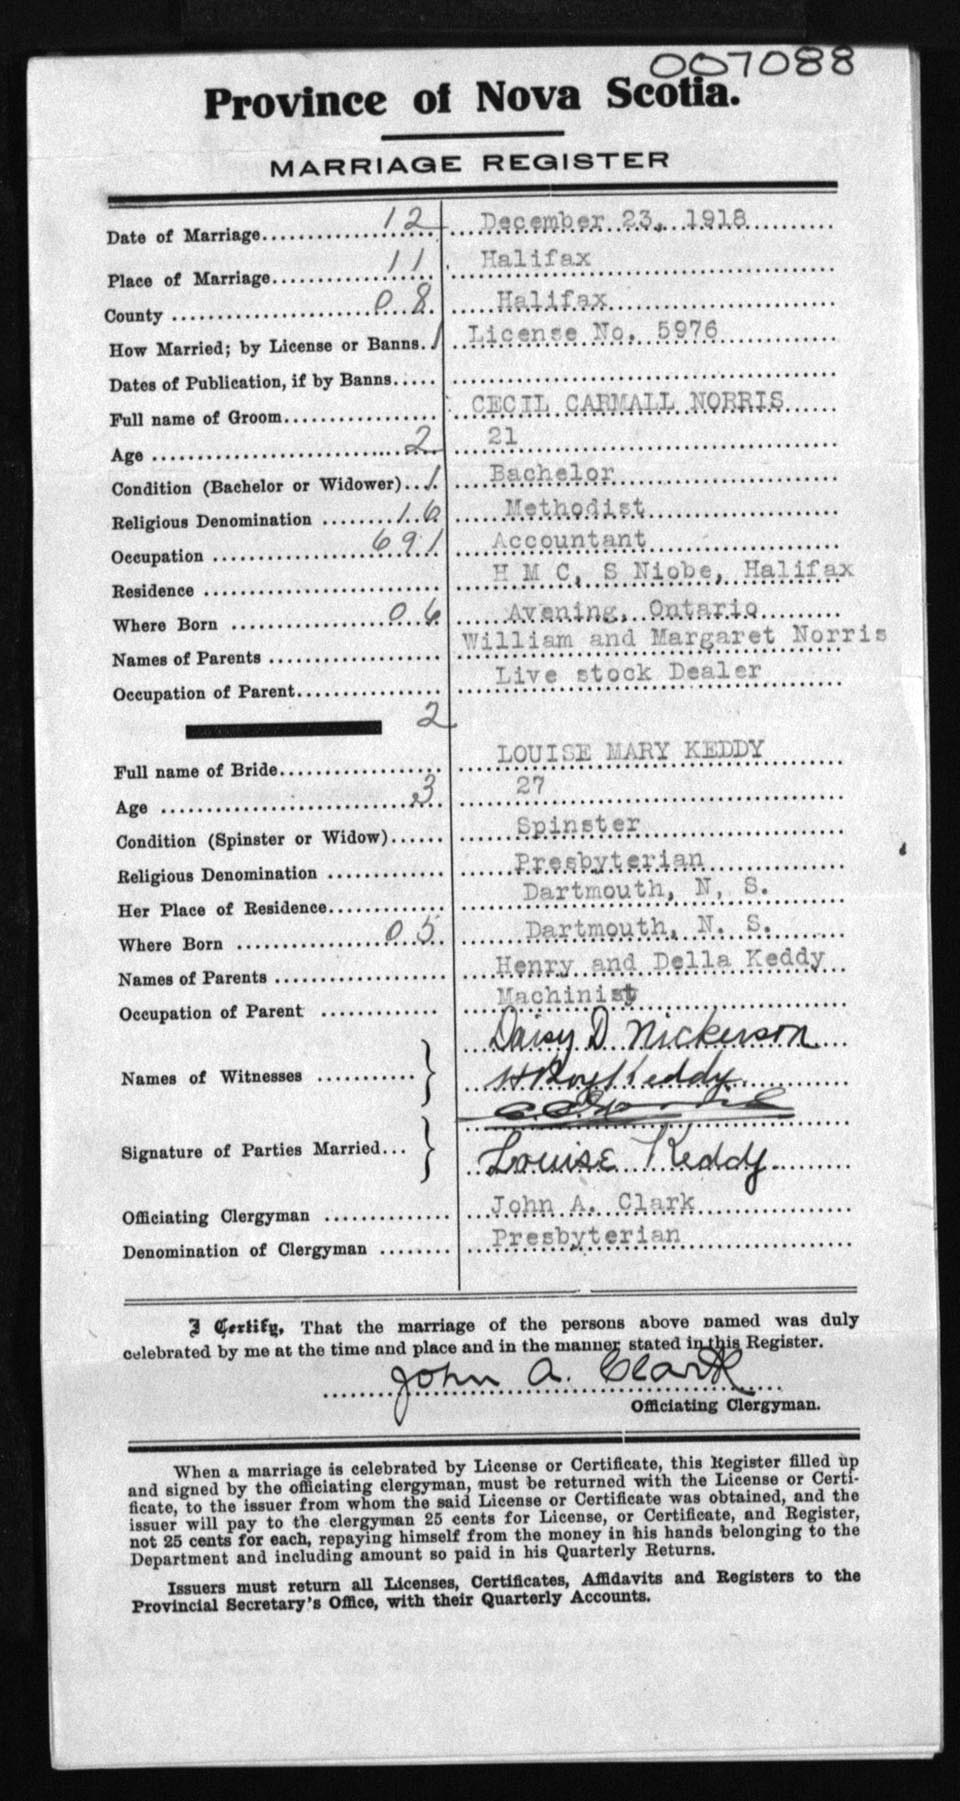 007088
Province of Nova Scotia.
MARRIAGE REGISTER
Date of Marriage.................... 12 December 23, 1918
Place of Marriage................... 11 Halifax
County ........................ 08 Halifax
How Married; by License or Banns.. 1 License No. 5976
Dates of Publication, if by Banns.....
Full name of Groom................. CECIL CARMALL NORRIS
Age ............................ 2 21
Condition (Bachelor or Widower)... 1 Bachelor
Religious Denomination ........ 16 Methodist
Occupation .................... 691 Accountant
Residence ........................ H M C, S Niobe, Halifax
Where Born .................. 06 Avening, Ontario
Names of Parents .................. William and Margaret Norris
Occupation of Parent................ Live stock Dealer
2
Full name of Bride.................. LOUISE MARY KEDDY
Age ............................ 3 27
Condition (Spinster or Widow)...... Spinster
Religious Denomination ............ Presbyterian
Her Place of Residence............. Dartmouth, N, S.
Where Born ................... 05 Dartmouth, N. S.
Names of Parents .................. Henry and Della Keddy
Occupation of Parent ............. Machinist
Names of Witnesses ........... } Daisy D. Nickerson
H Roy Keddy
Signature of Parties Married... }
Louise Keddy
Officiating Clergyman ............. John A. Clark
Denomination of Clergyman ........ Presbyterian
I Certify, That the marriage of the persons above named was duly
celebrated by me at the time and place and in the manner stated in this Register.
John A. Clark
Officiating Clergyman.
When a marriage is celebrated by License or Certificate, this Register filled up
and signed by the officiating clergyman, must be returned with the License or Certi-
ficate, to the issuer from whom the said License or Certificate was obtained, and the
issuer will pay to the clergyman 25 cents for License, or Certificate, and Register,
not 25 cents for each, repaying himself from the money in his hands belonging to the
Department and including amount so paid in his Quarterly Returns.
Issuers must return all Licenses, Certificates, Affidavits and Registers to the
Provincial Secretary's Office, with their Quarterly Accounts.